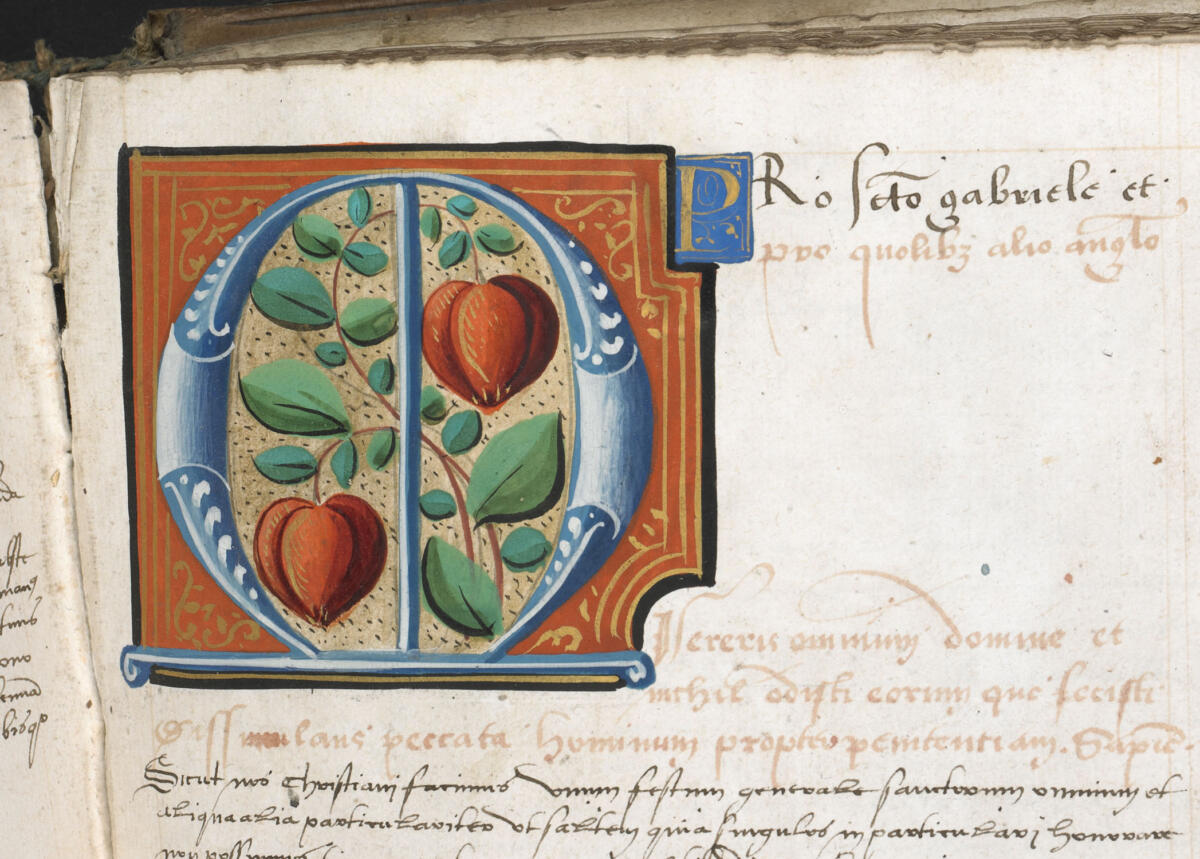 PRo scto gabriele et
pro quolibz alio anglo
M
isereris omnium domine et
nichil odisti eorum que fecisti
dissimulans peccata hominum propter penitentiam. Sapie
Sicut nos Christiani facimus unum festum generale sanctorum omnium et
aliqua alia particulariter ut saltem quia singulos in particulari honorare
non possumus